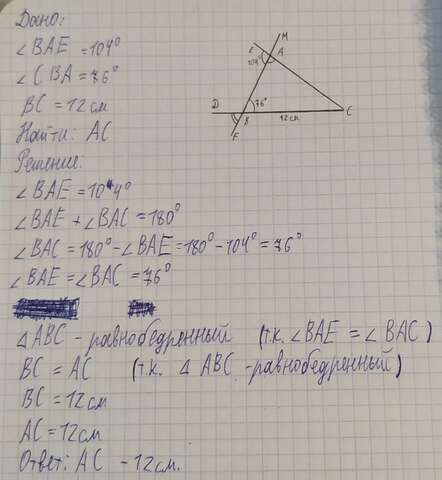 Дано:
∠BAE = 104°
∠CBA = 76°
BC = 12 см
Найти: AC
Решение:
∠BAE = 104°
∠BAE + ∠BAC = 180°
∠BAC = 180° - ∠BAE = 180° - 104° = 76°
∠BAE = ∠BAC = 76°
△ABC - равнобедренный (т.к. ∠BAE = ∠BAC)
BC = AC (т.к. △ ABC - равнобедренный)
BC = 12 см
AC = 12 см
Ответ: AC - 12 см.
M
E
A
104°
D
76°
B
12 см
C
F